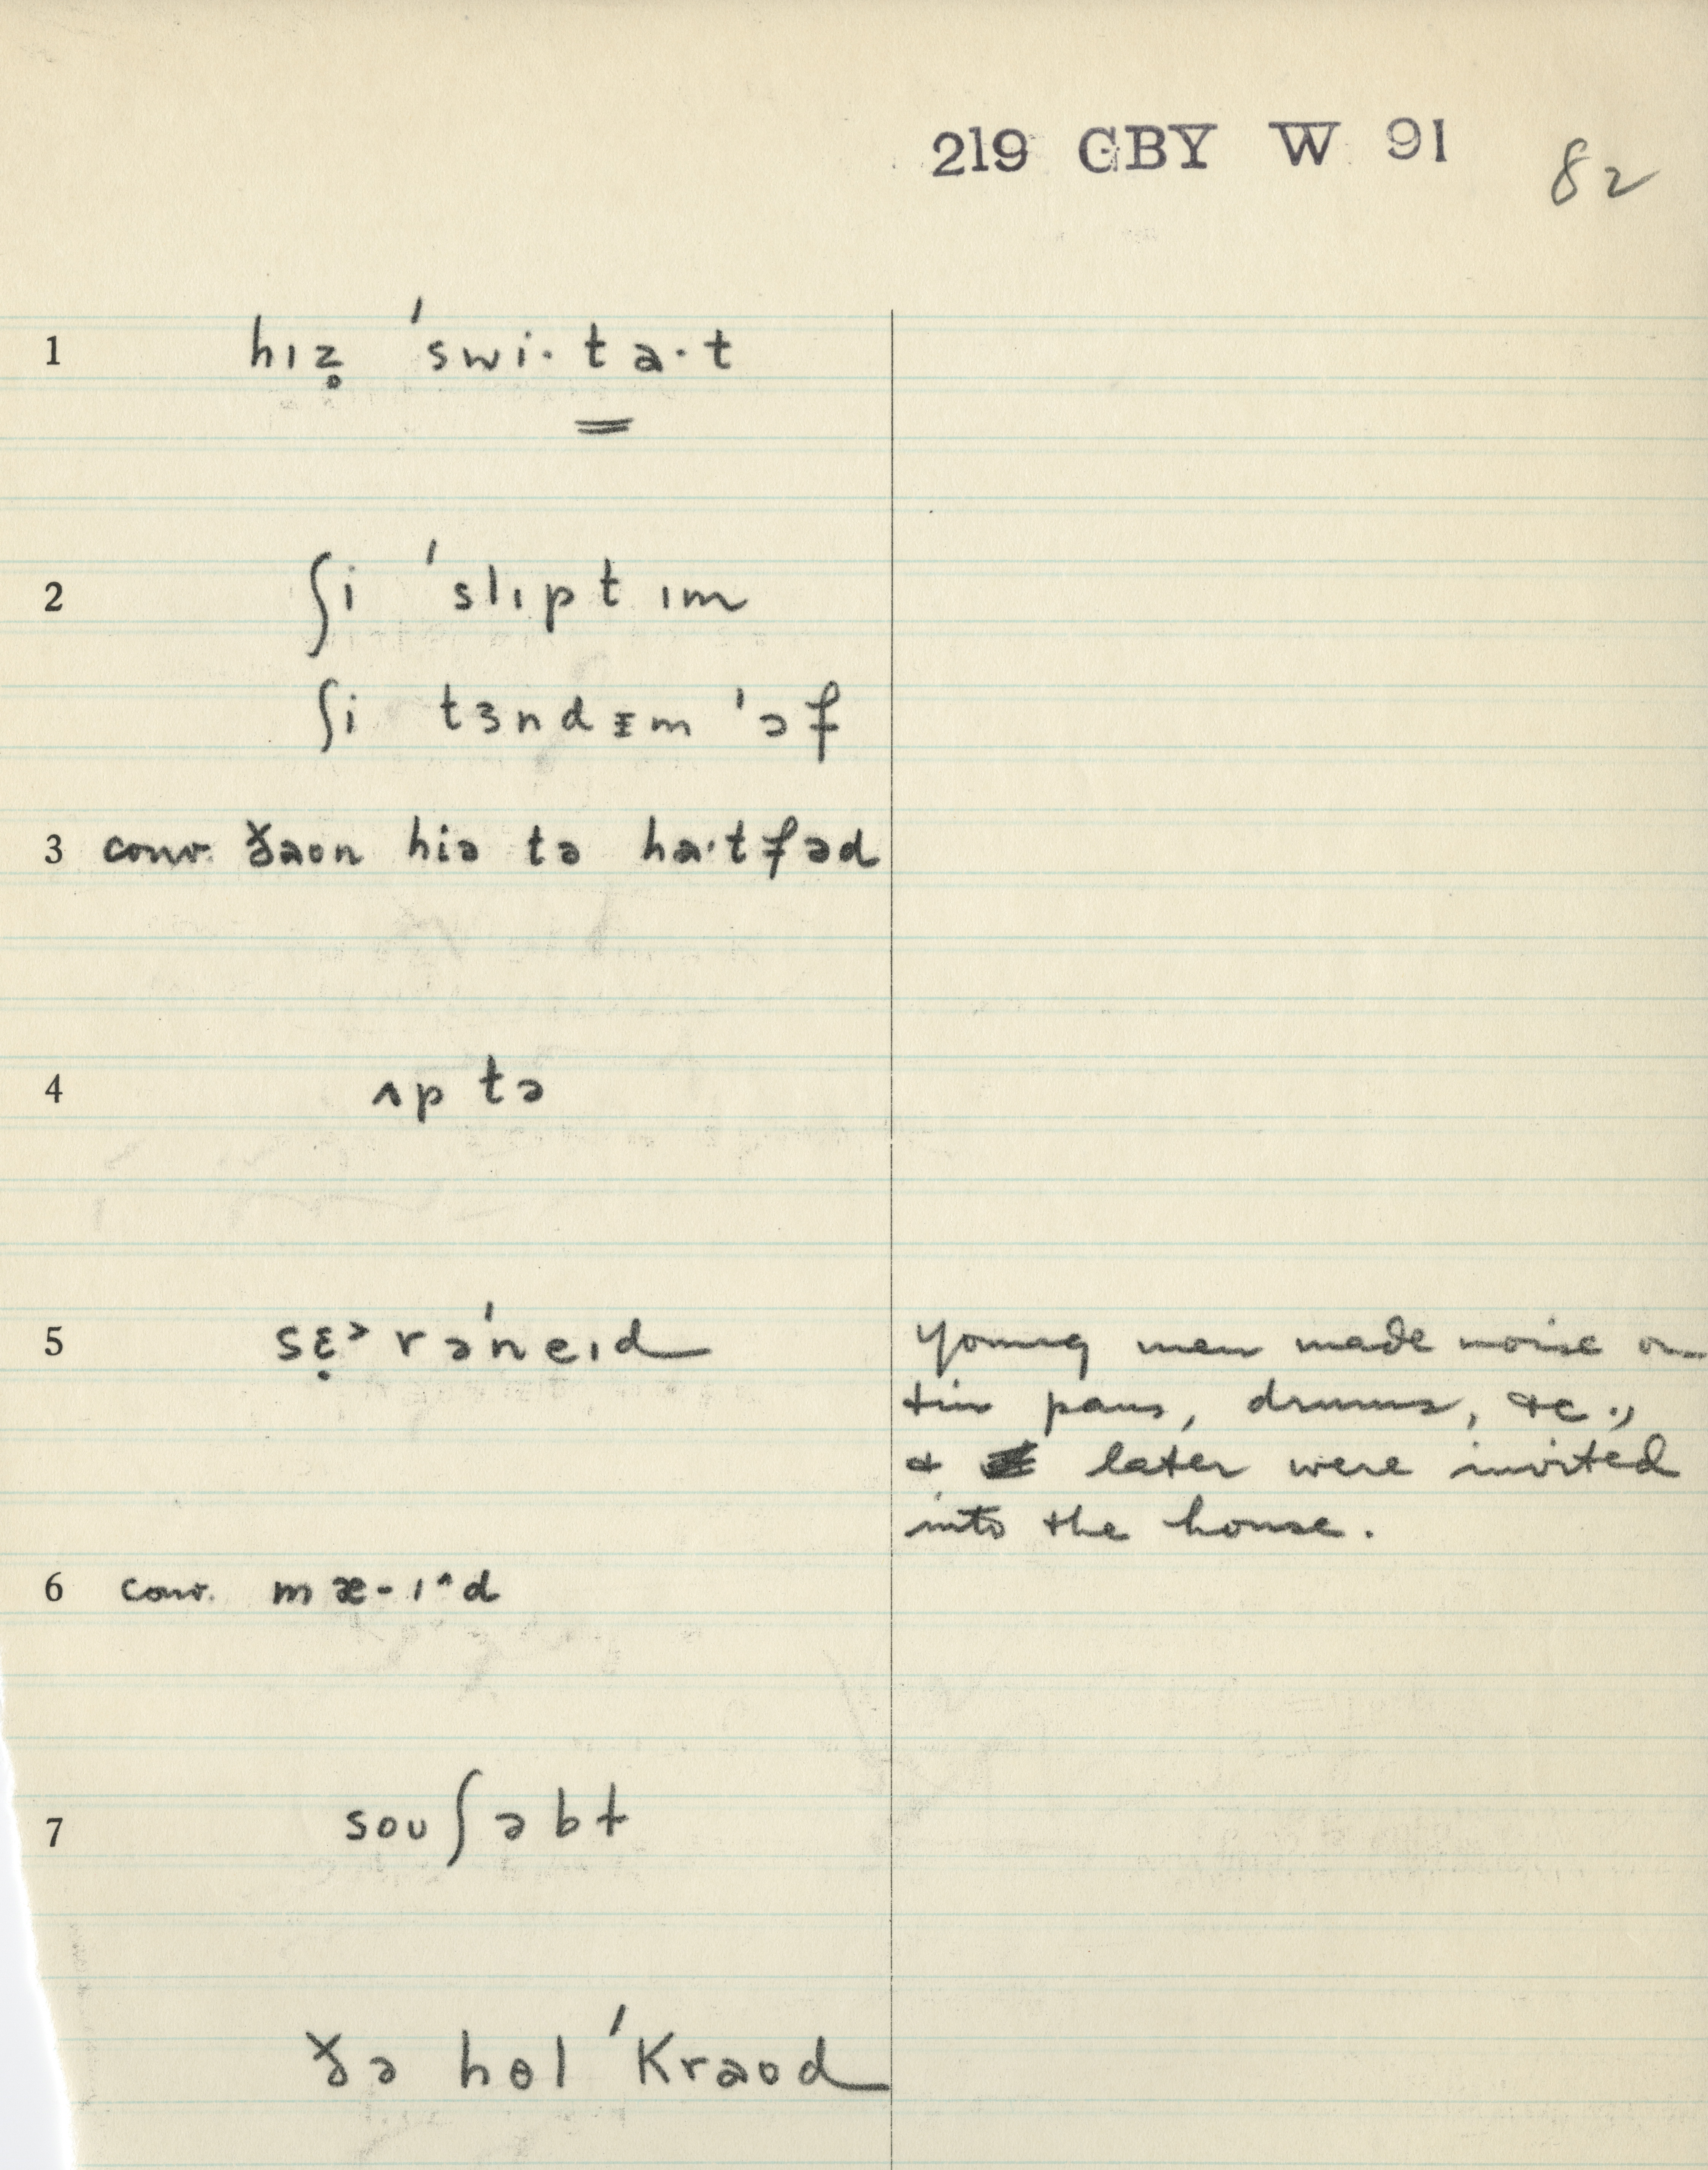 219 GBY W 91 82
1 hɪz̥ ˈswi·ta·t
2 ʃi ˈslɪptɪm
ʃi tɜndɪm ˈɔf
3 conv. ðaʊn hiə tə ha·tfəd
4 ʌp tə
5 sɛ̣˃rəˈneɪd young men made noise on
tin pans, drums, &c.,
& later were invited
into the house.
6 conv. mæ-ɪ^d
7 soʊʃəbt
ðə hɵl ˈkraʊd